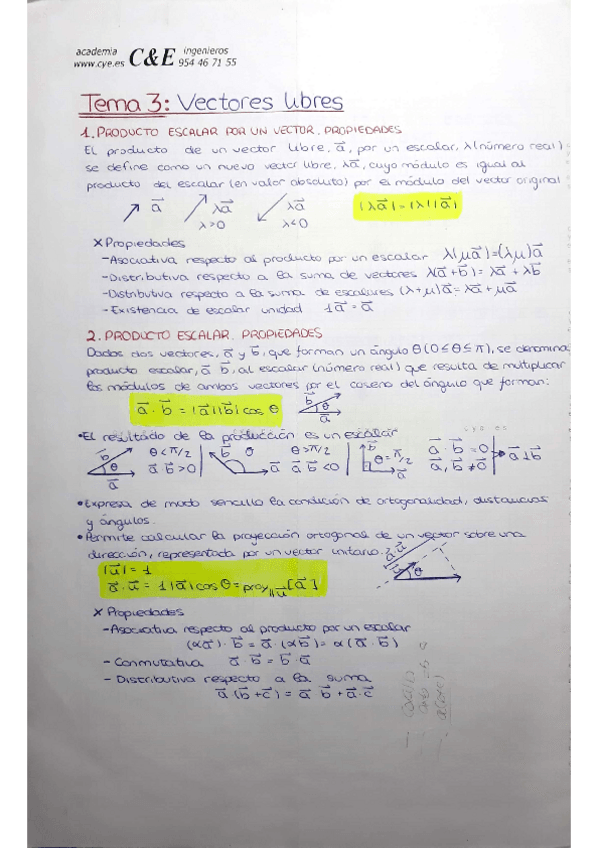 academia C&E ingenieros
www.cye.es 954 46 71 55
Tema 3: Vectores libres
1. PRODUCTO ESCALAR POR UN VECTOR. PROPIEDADES
El producto de un vector libre, a⃗, por un escalar, λ (número real)
se define como un nuevo vector libre, λa⃗, cuyo módulo es igual al
producto del escalar (en valor absoluto) por el módulo del vector original
a⃗ λa⃗ λa⃗ |λa⃗| = |λ||a⃗|
λ>0 λ<0
× Propiedades
- Asociativa respecto al producto por un escalar λ(μa⃗)=(λμ)a⃗
- Distributiva respecto a la suma de vectores λ(a⃗+b⃗) = λa⃗ + λb⃗
- Distributiva respecto a la suma de escalares (λ+μ)a⃗ = λa⃗ + μa⃗
- Existencia de escalar unidad 1a⃗ = a⃗
2. PRODUCTO ESCALAR. PROPIEDADES
Dados dos vectores, a⃗ y b⃗, que forman un ángulo θ (0≤θ≤π), se denomina
producto escalar, a⃗ b⃗, al escalar (número real) que resulta de multiplicar
los módulos de ambos vectores por el coseno del ángulo que forman:
a⃗ · b⃗ = |a⃗||b⃗| cos θ b⃗ θ a⃗
• El resultado de la producción es un escalar
b⃗ θ a⃗ θ<π/2 a⃗ b⃗>0 b⃗ θ a⃗ θ>π/2 a⃗ b⃗<0 b⃗ θ=π/2 a⃗ a⃗ · b⃗ = 0 a⃗, b⃗ ≠ 0⃗ a⃗⊥b⃗
• Expresa de modo sencillo la condición de ortogonalidad, distancias
y ángulos.
• Permite calcular la proyección ortogonal de un vector sobre una
dirección, representada por un vector unitario.
|u⃗| = 1 θ
a⃗ · u⃗ = 1|a⃗| cos θ = proy||u⃗ [a⃗]
× Propiedades
- Asociativa respecto al producto por un escalar
(αa⃗) · b⃗ = a⃗ · (αb⃗) = α(a⃗ · b⃗)
- Conmutativa a⃗ · b⃗ = b⃗ · a⃗
- Distributiva respecto a la suma
a⃗ (b⃗ + c⃗) = a⃗ b⃗ + a⃗ · c⃗